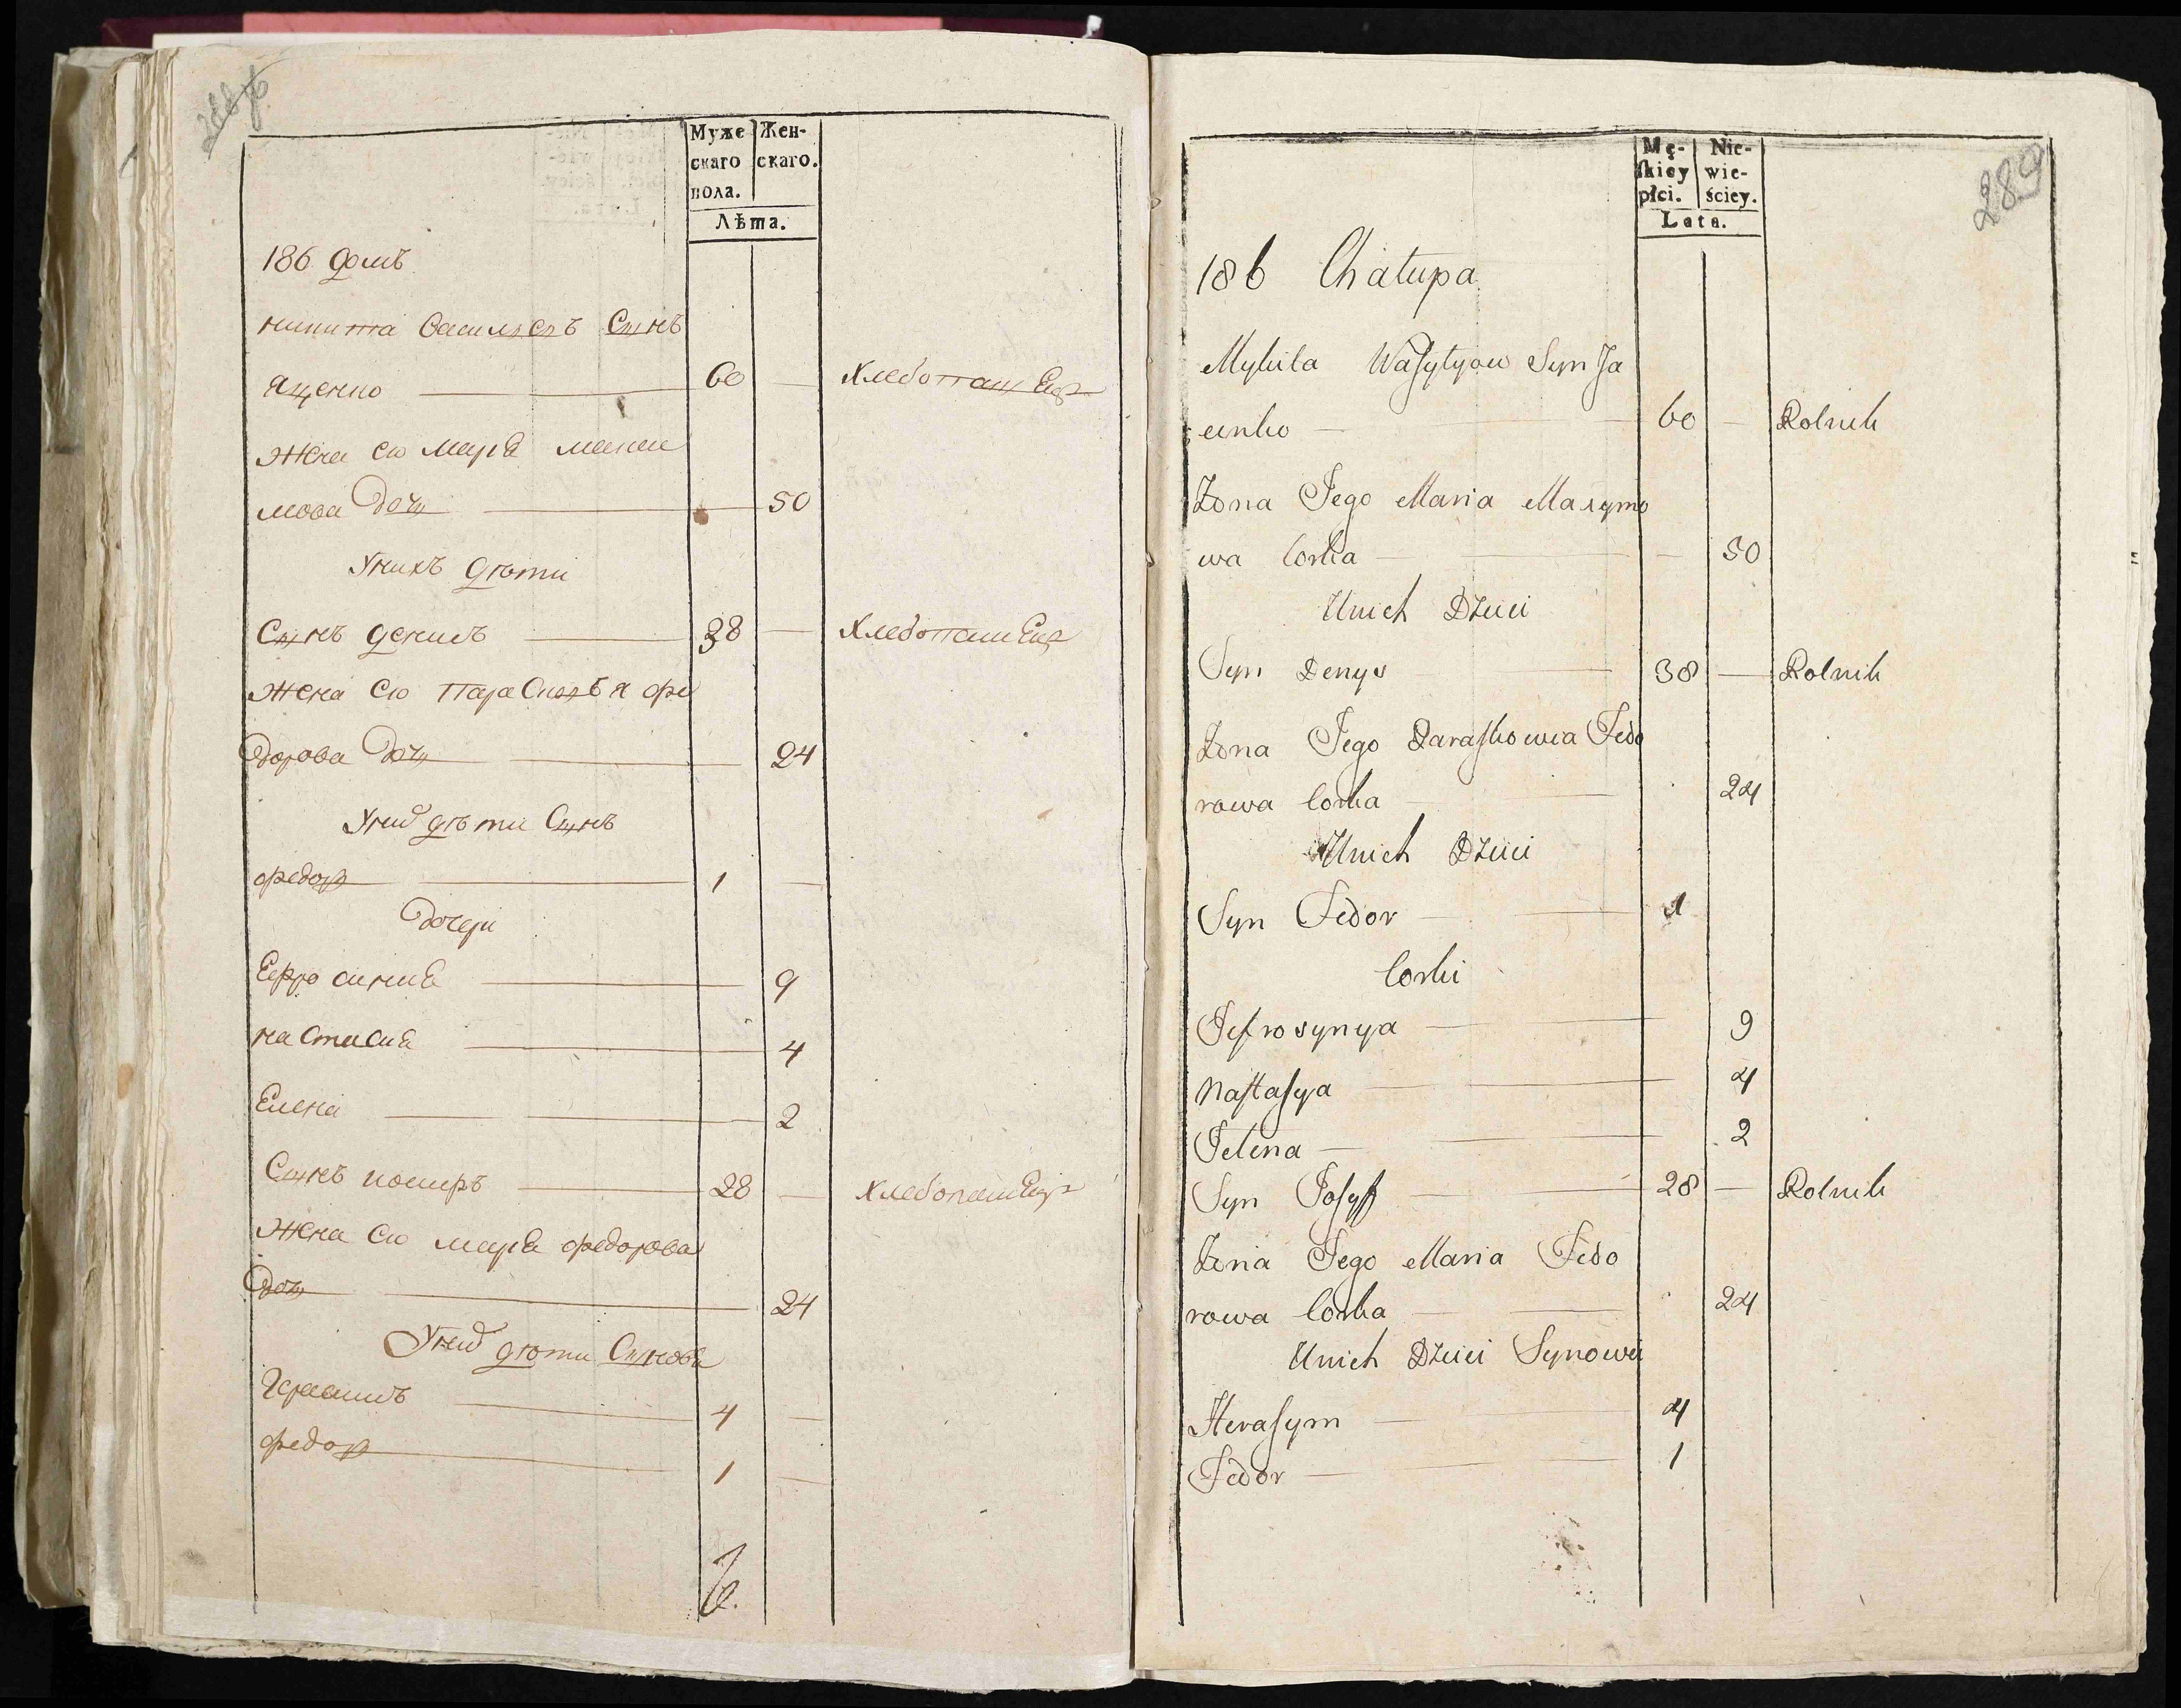 Муже
скаго
пола.
Жен-
скаго.
Лѣта.
186 домъ
никита васильевъ Сынъ
ященко 60 — Хлебопашец
жена ею маря макси
мова дочь 50
Унихъ дѣти
Сынъ денисъ 38 — Хлебопашец
жена ею Парасковѣя фе
дорова дочь 24
Уних дѣти Сынъ
федор 1 —
дочери
Ефросиния 9
настасия 4
Елена 2
Сынъ иосипъ 28 — Хлебопашец
жена ею маря федорова
дочь 24
Уних дѣти Сынове
Герасимъ 4 —
федор 1 —
289
Mę-
skiey
płci.
Nie-
wie-
ściey.
Lata.
186 Chałupa
Mykita Wasylyow Syn Ja
cenko — 60 — Rolnik
Zona Jego Maria Maxymo
wa Corka — — 50
Unich Dzieci
Syn Denys — 38 — Rolnik
Zona Jego Paraskowia Fedo
rowa Corka — 24
Unich Dzieci
Syn Fedor — 1
Corki
Jefrosynya — 9
Nastasya — 4
Jelena — 2
Syn Josyf — 28 — Rolnik
Zona Jego Maria Fedo
rowa Corka — 24
Unich Dzieci Synowie
Herasym — 4
Fedor — 1